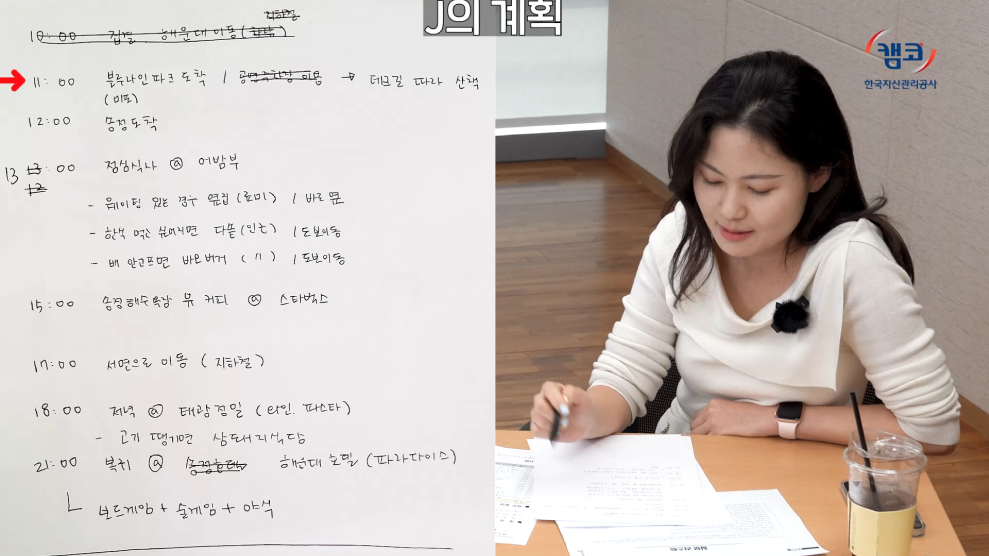 J의 계획
캠코
한국자산관리공사
10:00 집결. 해운대 이동 (지하철)
11:00 블루라인파크 도착 / → 데크길 따라 산책
(미포)
12:00 송정도착
13:00 점심식사 @ 어밤부
- 웨이팅 있는 경우 옆집 (로미) / 바로 옆
- 한식 먹고 싶어지면 다뜰 (인근) / 도보이동
- 배 안고프면 바로버거 ( 〃 ) / 도보이동
15:00 송정해수욕장 뷰 커피 @ 스타벅스
17:00 서면으로 이동 (지하철)
18:00 저녁 @ 태광정밀 (와인. 파스타)
- 고기 땡기면 상도돼지석담
21:00 복귀 @ 해운대 호텔 (파라다이스)
보드게임 + 술게임 + 야식